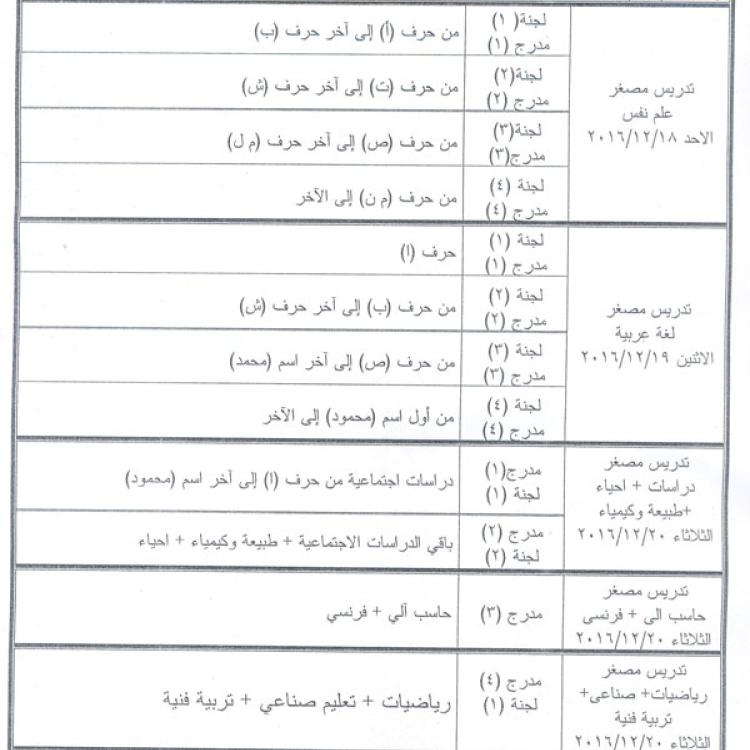 تدريس مصغر
علم نفس
الاحد ٢٠١٦/١٢/١٨
لجنة( ١)
مدرج (١)
من حرف (أ) إلى آخر حرف (ب)
لجنة(٢)
مدرج (٢)
من حرف (ت) إلى آخر حرف (ش)
لجنة(٣)
مدرج(٣)
من حرف (ص) إلى آخر حرف (م ل)
لجنة (٤)
مدرج (٤)
من حرف (م ن) إلى الآخر
تدريس مصغر
لغة عربية
الاثنين ٢٠١٦/١٢/١٩
لجنة (١)
مدرج (١)
حرف (ا)
لجنة (٢)
مدرج (٢)
من حرف (ب) إلى آخر حرف (ش)
لجنة (٣)
مدرج (٣)
من حرف (ص) إلى آخر اسم (محمد)
لجنة (٤)
مدرج (٤)
من أول اسم (محمود) إلى الآخر
تدريس مصغر
دراسات + احياء
+طبيعة وكيمياء
الثلاثاء ٢٠١٦/١٢/٢٠
مدرج(١)
لجنة (١)
دراسات اجتماعية من حرف (ا) إلى آخر اسم (محمود)
مدرج (٢)
لجنة (٢)
باقي الدراسات الاجتماعية + طبيعة وكيمياء + احياء
تدريس مصغر
حاسب الى + فرنسى
الثلاثاء ٢٠١٦/١٢/٢٠
مدرج (٣)
حاسب آلي + فرنسي
تدريس مصغر
رياضيات+ صناعى+
تربية فنية
الثلاثاء ٢٠١٦/١٢/٢٠
مدرج (٤)
لجنة (١)
رياضيات + تعليم صناعي + تربية فنية